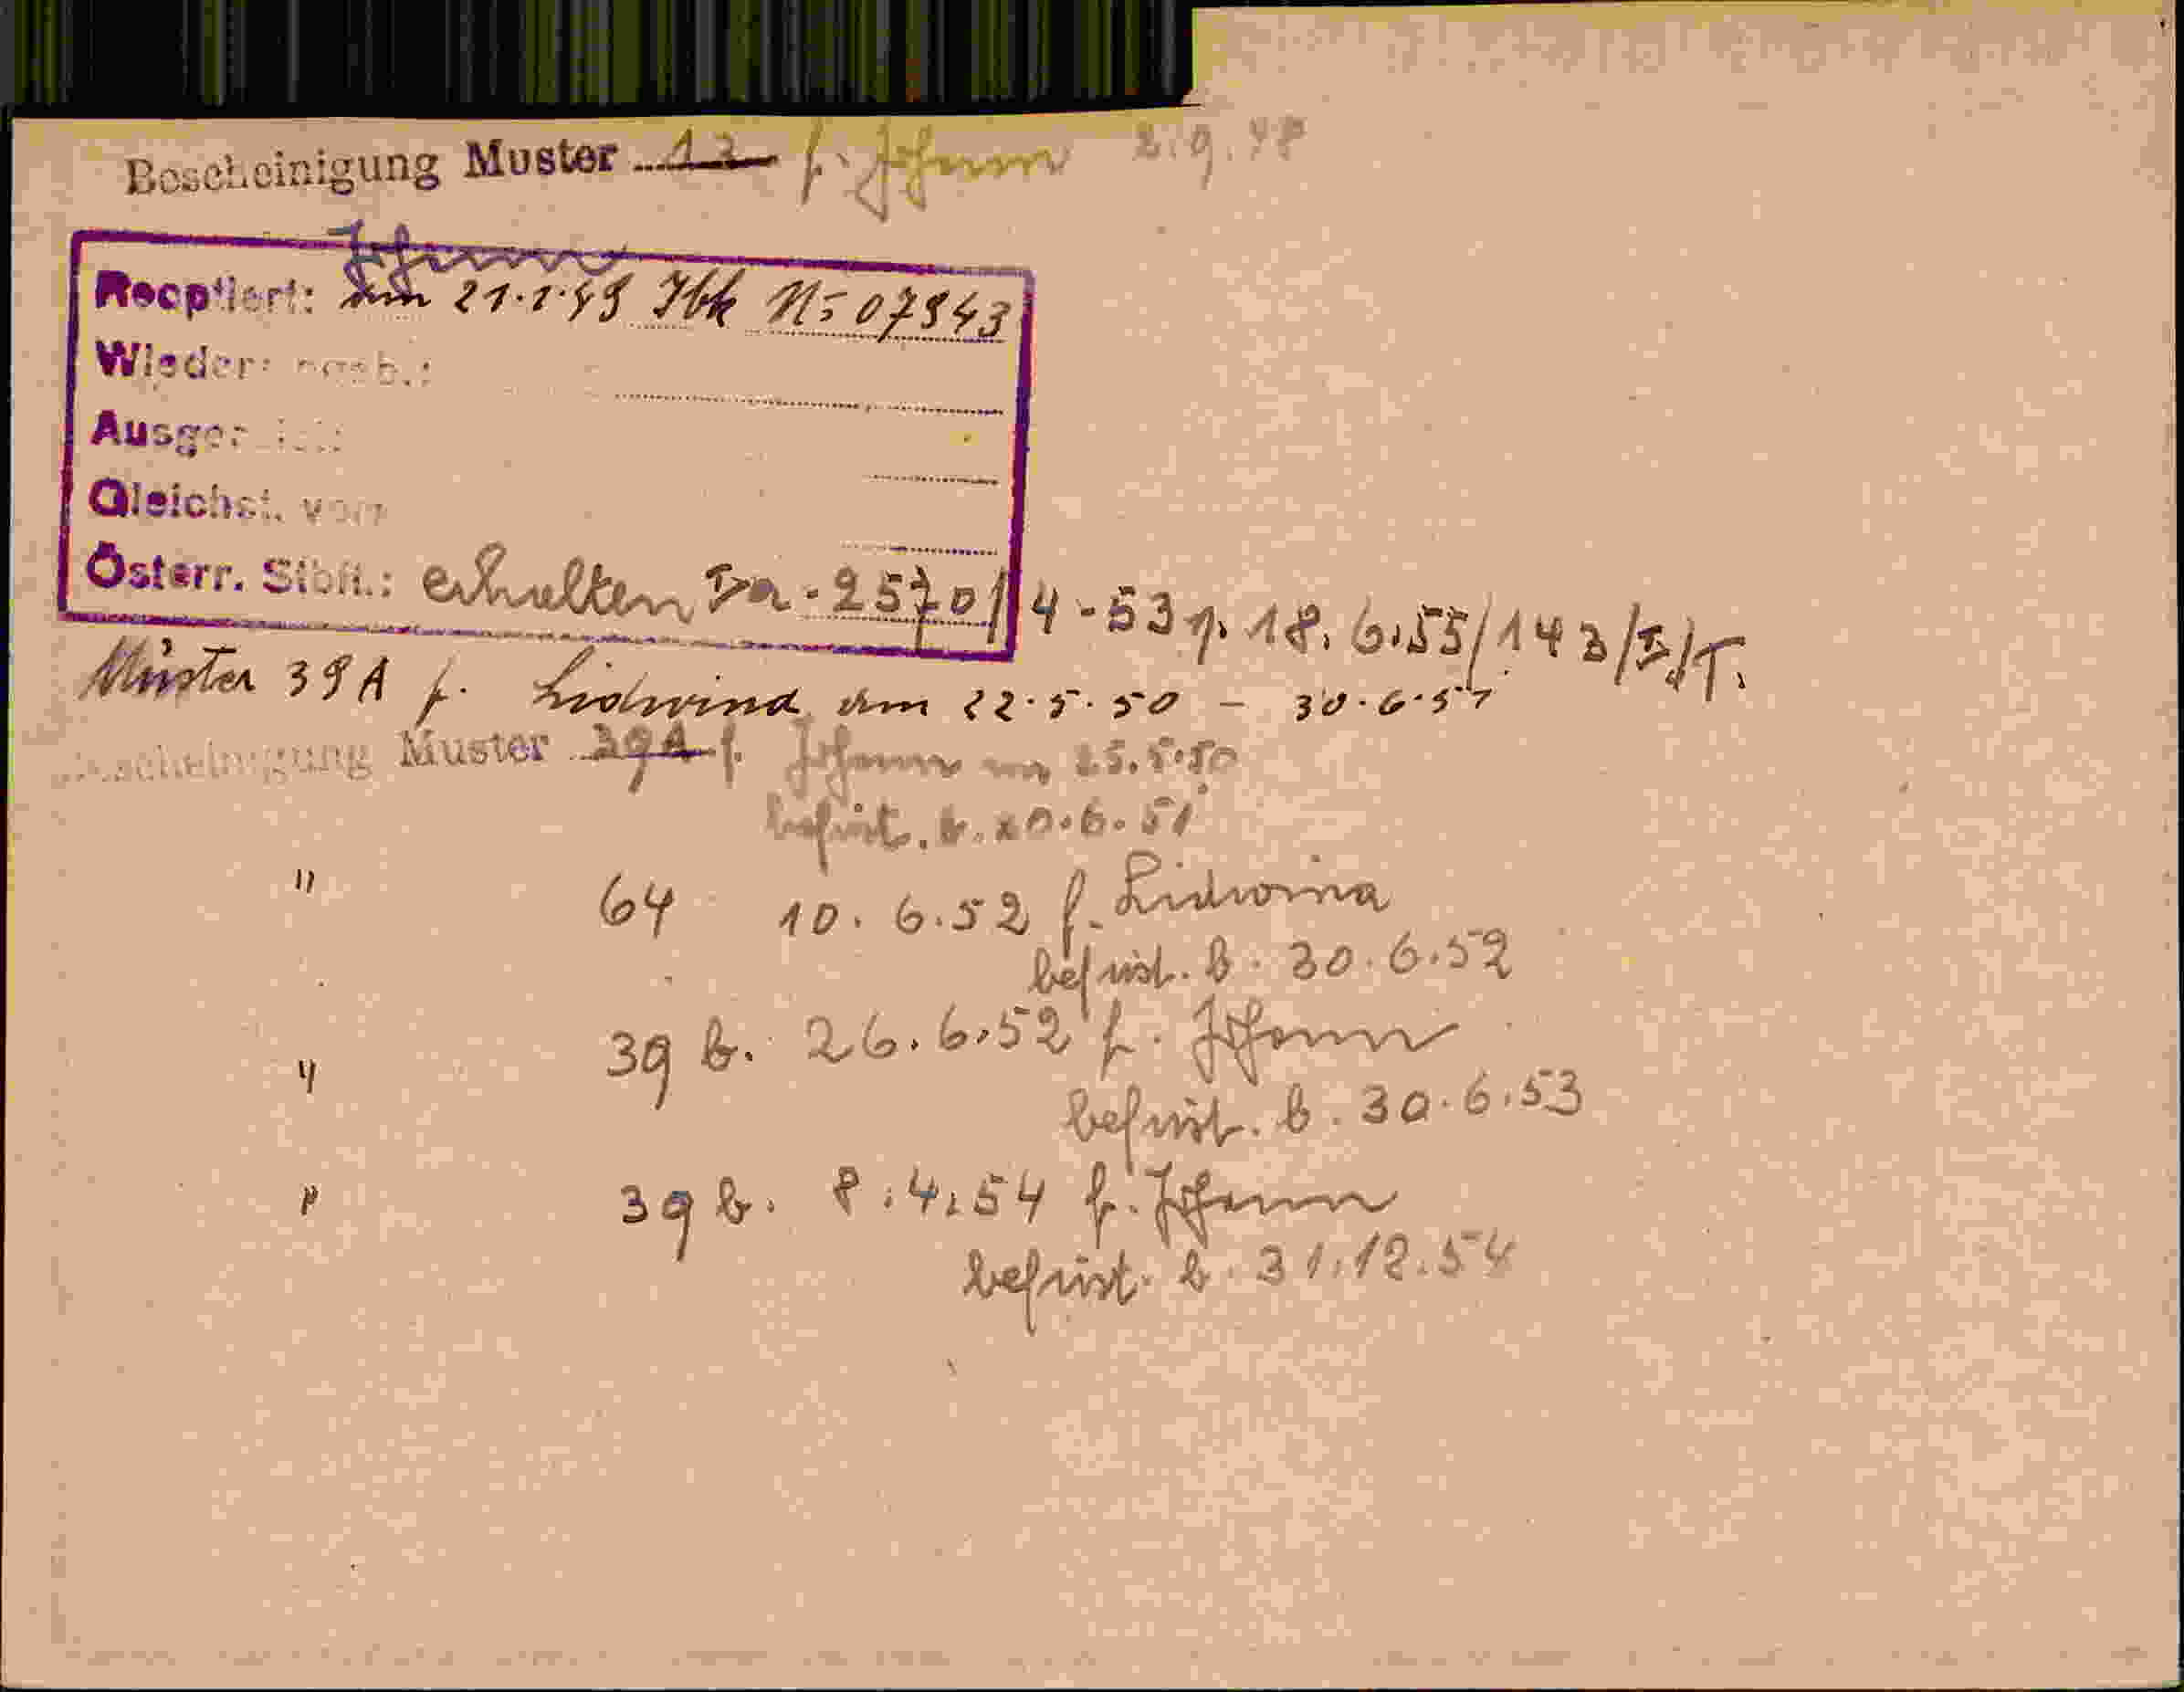 Bescheinigung Muster 13 f. Johann 2.9.48
Johann
Reoptiert: am 21.1.49 Ibk N= 07943
Wieder
Ausger
Gleichst. vom
Österr. Stbft.: erhalten Ia-2570/4-53 v. 18.6.55/143/I/T.
Muster 39A f. Lidwina am 22.5.50 - 30.6.51
Bescheinigung Muster 39A f. Johann am 25.5.50
befrist. b. 30.6.51
" 64 10.6.52 f. Lidwina
befrist. b. 30.6.52
" 39 b. 26.6.52 f. Johann
befrist. b. 30.6.53
" 39 b. 8.4.54 f. Johann
befrist. b. 31.12.54